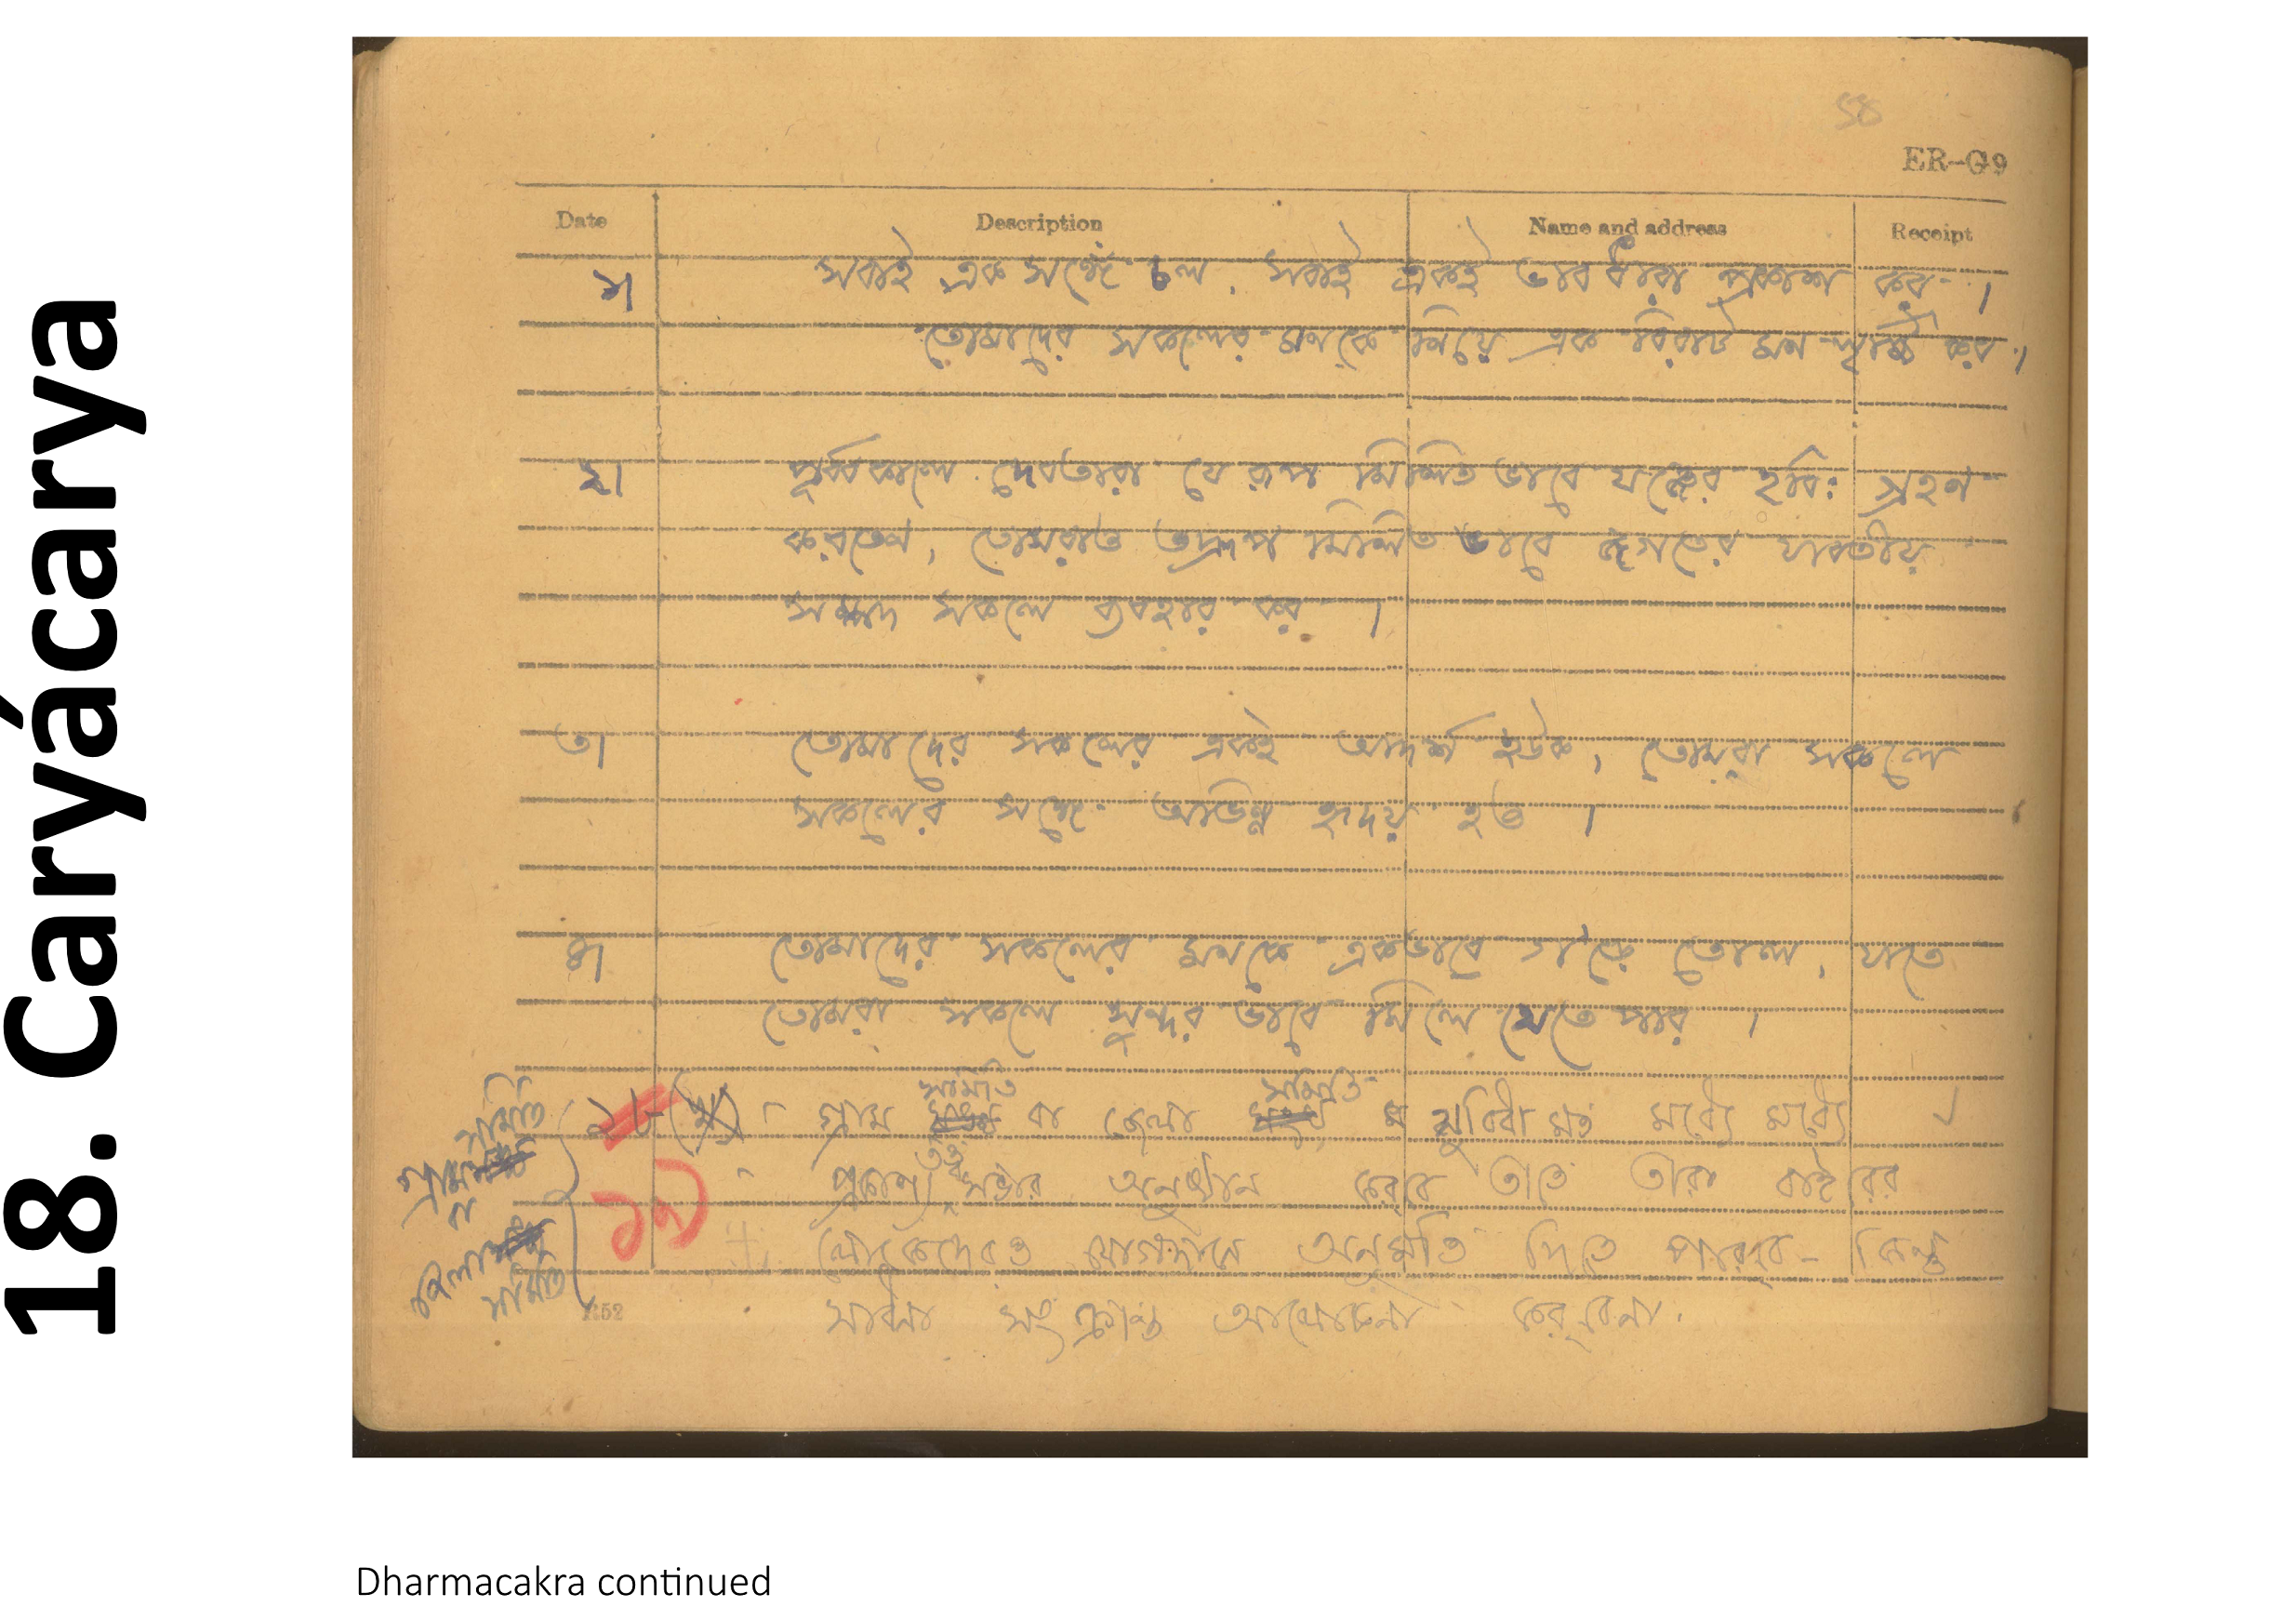 18. Caryácarya
58
ER-G9
Date Description Name and address Receipt
১। সবাই এক সঙ্গে চল, সবাই একই ভাবধারা প্রকাশ কর।
তোমাদের সকলের মনকে নিয়ে এক বিরাট মন সৃষ্টি কর।
২। পূর্ব্বকালে দেবতারা যে রূপ মিলিত ভাবে যজ্ঞের হবিঃ গ্রহন
করতেন, তোমরাও তদ্রূপ মিলিত ভাবে জগতের যাবতীয়
সম্পদ সকলে ব্যবহার কর।
৩। তোমাদের সকলের একই আদর্শ হউক, তোমরা সকলে
সকলের সঙ্গে অভিন্ন হৃদয় হও।
৪। তোমাদের সকলের মনকে একভাবে গ'ড়ে তোলো, যাতে
তোমরা সকলে সুন্দর ভাবে মিলে যেতে পার।
সমিতি সমিতি
সমিতি গ্রাম বা জেলা সুবিধা মত মধ্যে মধ্যে
গ্রাম তত্ত্ব
বা ১৯ প্রকাশ্য সভার অনুষ্ঠান করবে তাতে তারা বাইরের
জেলা লোকেদেরও যোগদানে অনুমতি দিতে পারবে- কিন্তু
সমিতি R52 সাধনা সংক্রান্ত আলোচনা করবেনা.
Dharmacakra continued